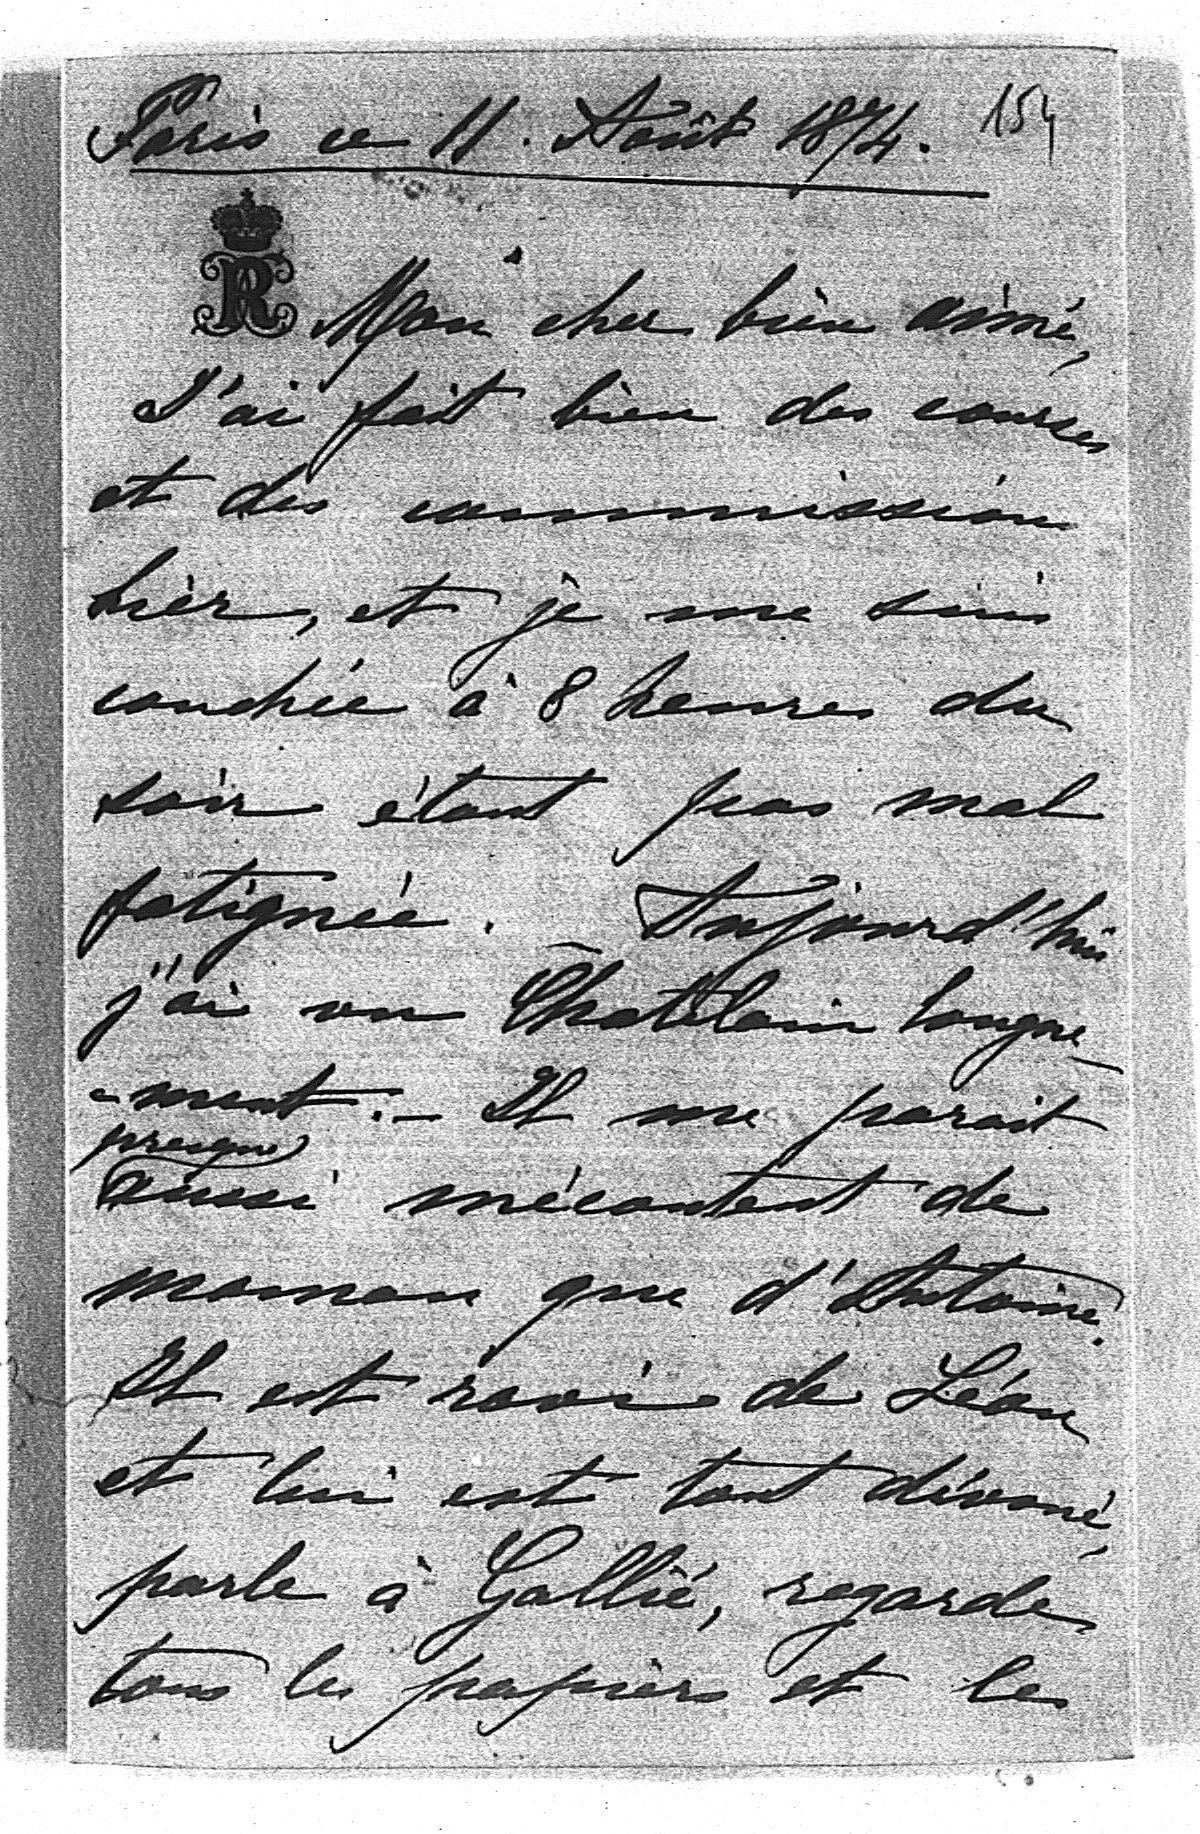 Paris ce 11. Août 1874. 154
R
Mon cher bien aimé,
J'ai fait bien des courses
et des commissions
hier, et je me suis
couchée à 8 heures du
soir étant pas mal
fatiguée. Aujourd'hui
j'ai vu Chatelain longue-
-ment. - Il me parait
presque
aussi mécontent de
maman que d'Antoine.
Il est ravi de Léon
et lui est tout dévoué,
parle à Gallié, regarde
tous les papiers et les